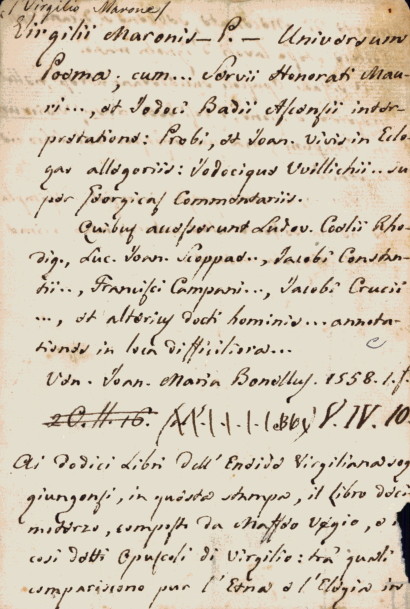 (Virgilio Marone)
Virgilii Maronis - P. - Universum
Poema; cum... Servii Honorati Mau-
ri..., et Jodoci Badii Ascensii inter-
pretatione: Probi, et Joan. Vivis in Eclo-
gas allegoriis: Jodocique Vvillichii.. su-
per Georgicas Commentariis.
Quibus accesserunt Ludov. Coelii Rho-
dig., Luc. Joan. Scoppae.., Jacobi Constan-
tii.., Francisci Campani..., Jacobi Crucii
..., et alterius docti hominis... annota-
tiones in loca difficiliora...
Ven. Joan. Maria Bonellus. 1558. 1. f.
2 C. II. 16. V. IV. 10.
Ai dodici Libri dell' Eneide Virgiliana sog-
giungonsi, in questa stampa, il libro deci-
moterzo, composto da Maffeo Vegio, e i
così detti Opuscoli di Virgilio: tra' quali
compariscono pur l'Etna e l'Elegia in